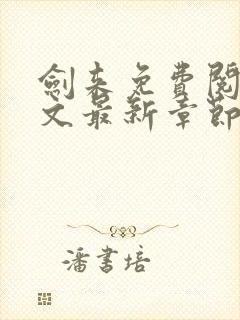 劍來免費閱
文最新章節
潘書培